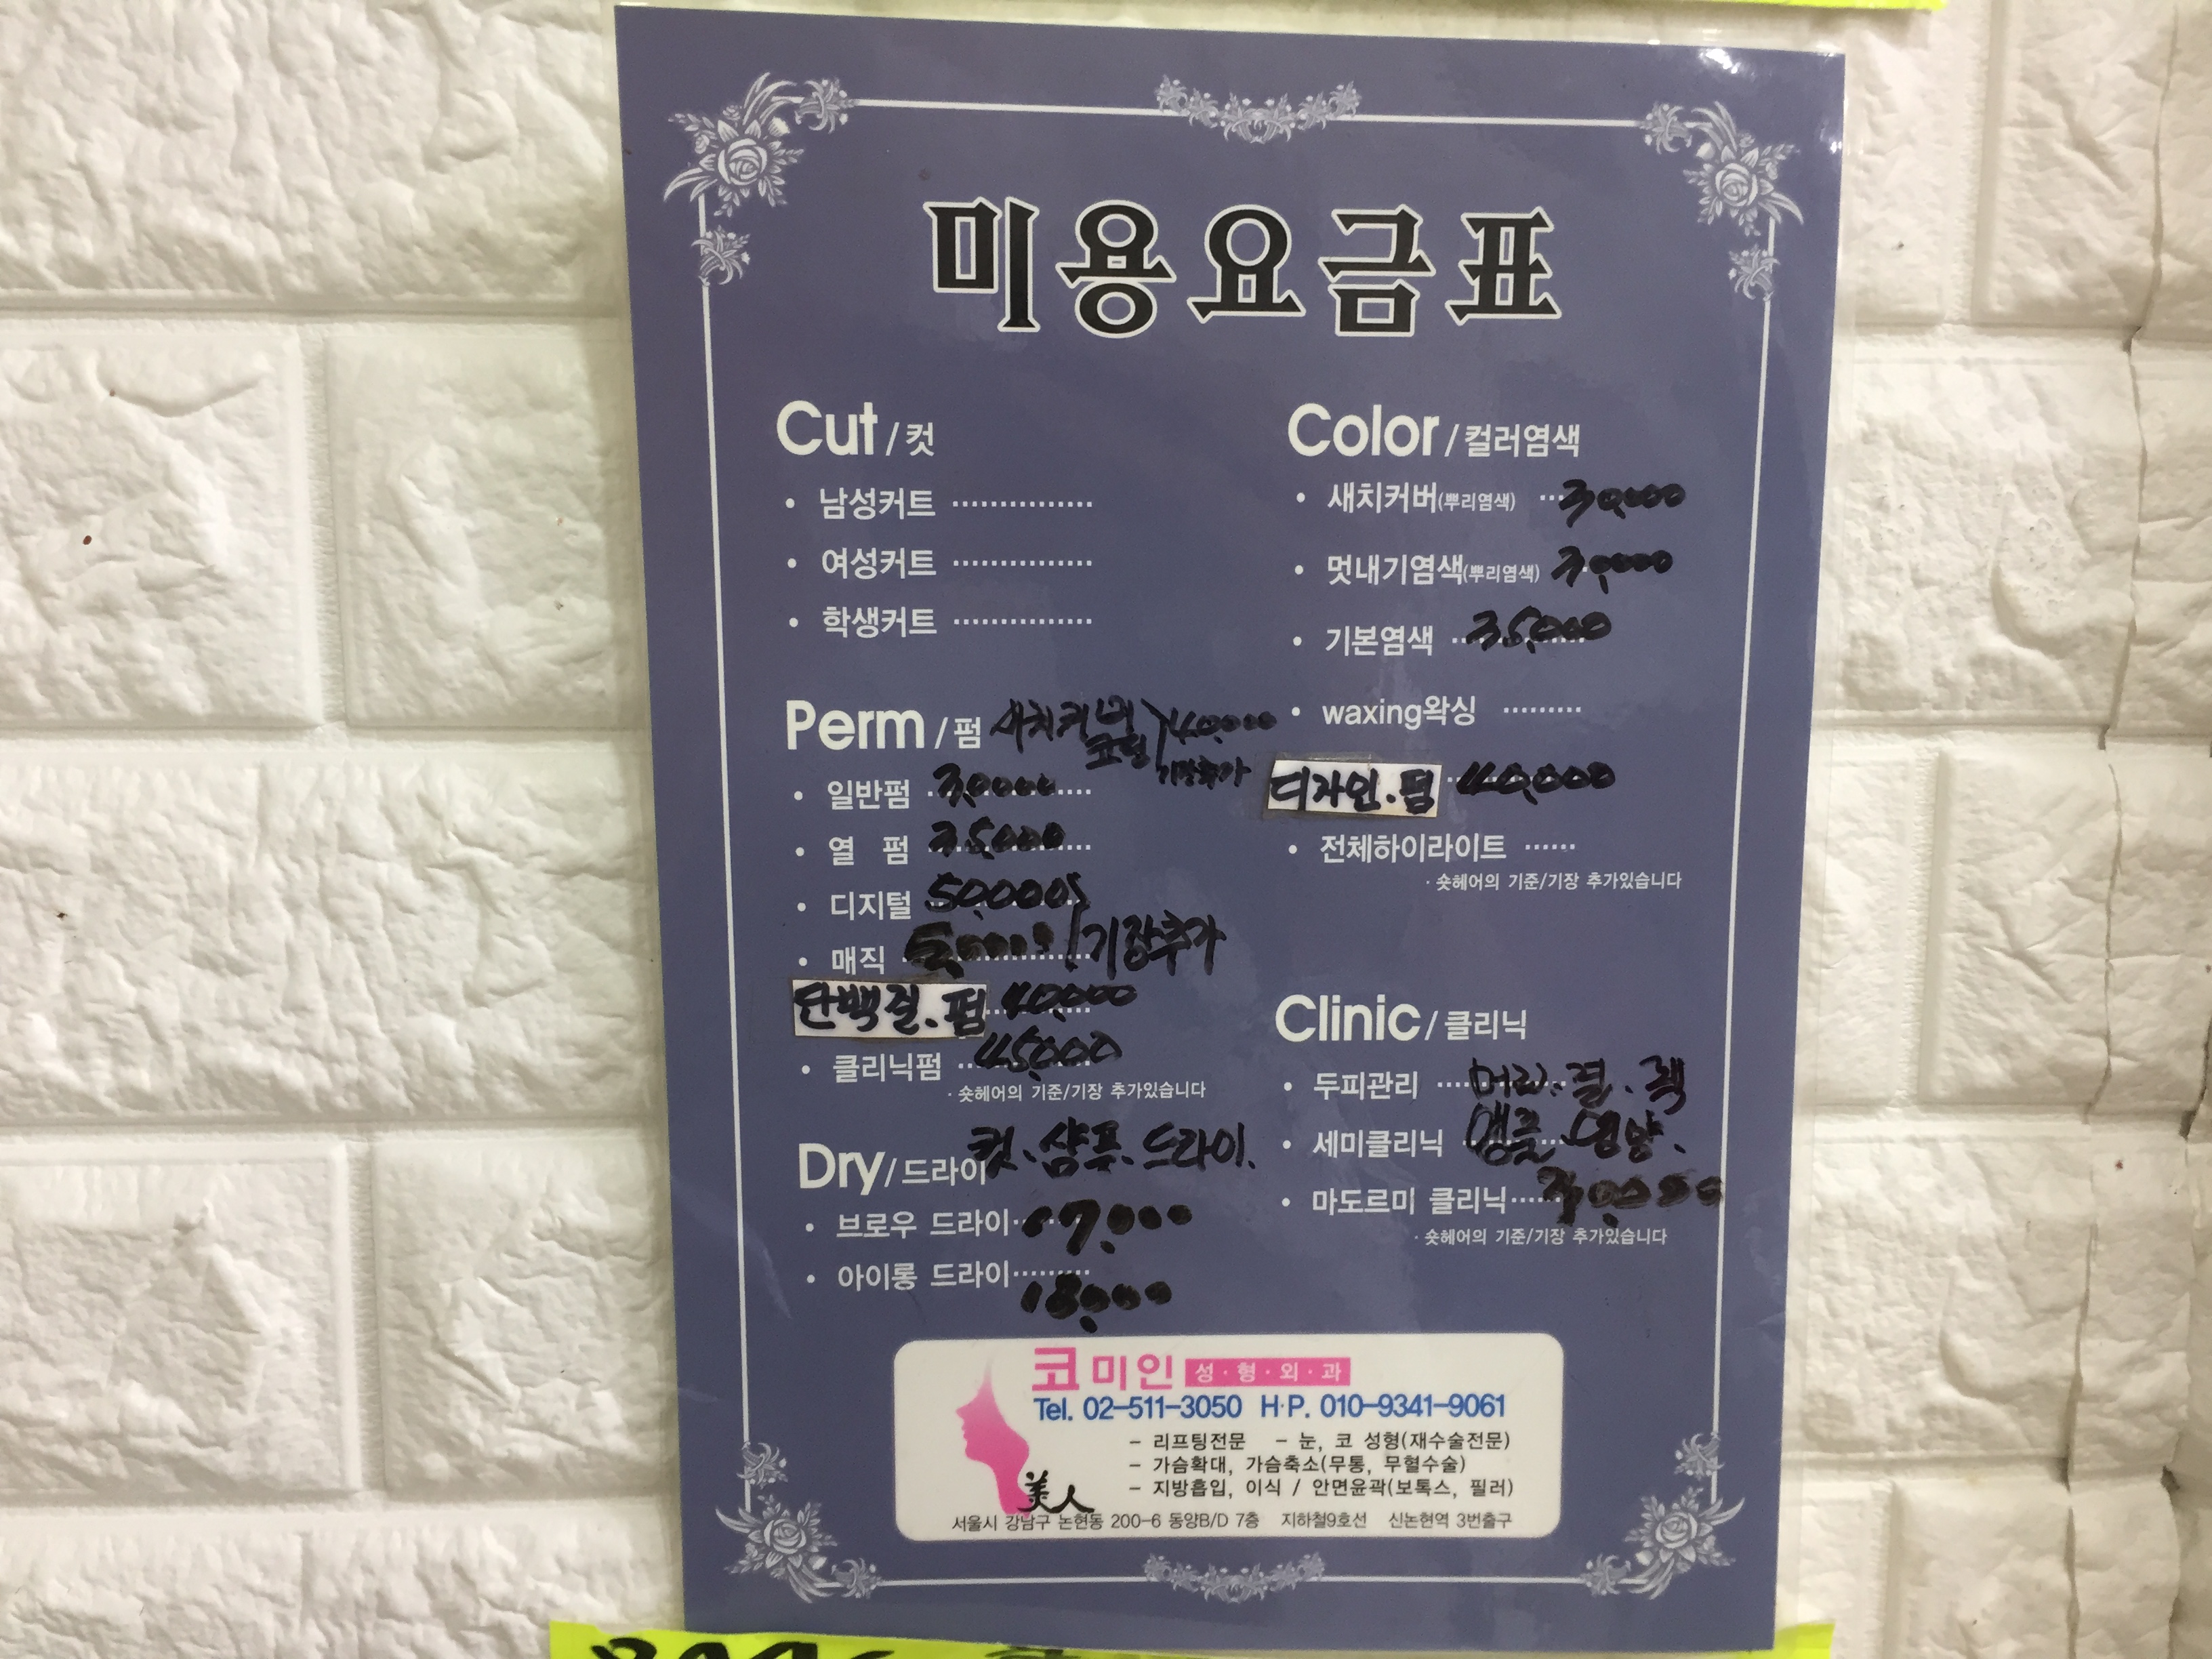 미용요금표
Cut / 컷
• 남성커트 ···············
• 여성커트 ···············
• 학생커트 ···············
Perm / 펌 새치커버 40,000
기장추가
• 일반펌 30,000
• 열 펌 35,000
• 디지털 50,000
• 매직 기장추가
단백질.펌 40,000
• 클리닉펌 45,000
· 숏헤어의 기준/기장 추가있습니다
Dry / 드라이 컷.샴푸.드라이.
• 브로우 드라이 17,000
• 아이롱 드라이 18,000
Color / 컬러염색
• 새치커버(뿌리염색) 30,000
• 멋내기염색(뿌리염색) 30,000
• 기본염색 35,000
• waxing왁싱 ·········
디자인.펌 40,000
• 전체하이라이트 ······
· 숏헤어의 기준/기장 추가있습니다
Clinic / 클리닉
• 두피관리 머리.결.
• 세미클리닉 앰플.영양.
• 마도르미 클리닉 30,000
· 숏헤어의 기준/기장 추가있습니다
코미인 성·형·외·과
Tel. 02-511-3050 H·P. 010-9341-9061
- 리프팅전문 - 눈, 코 성형(재수술전문)
- 가슴확대, 가슴축소(무통, 무혈수술)
- 지방흡입, 이식 / 안면윤곽(보톡스, 필러)
美人
서울시 강남구 논현동 200-6 동양B/D 7층 지하철9호선 신논현역 3번출구